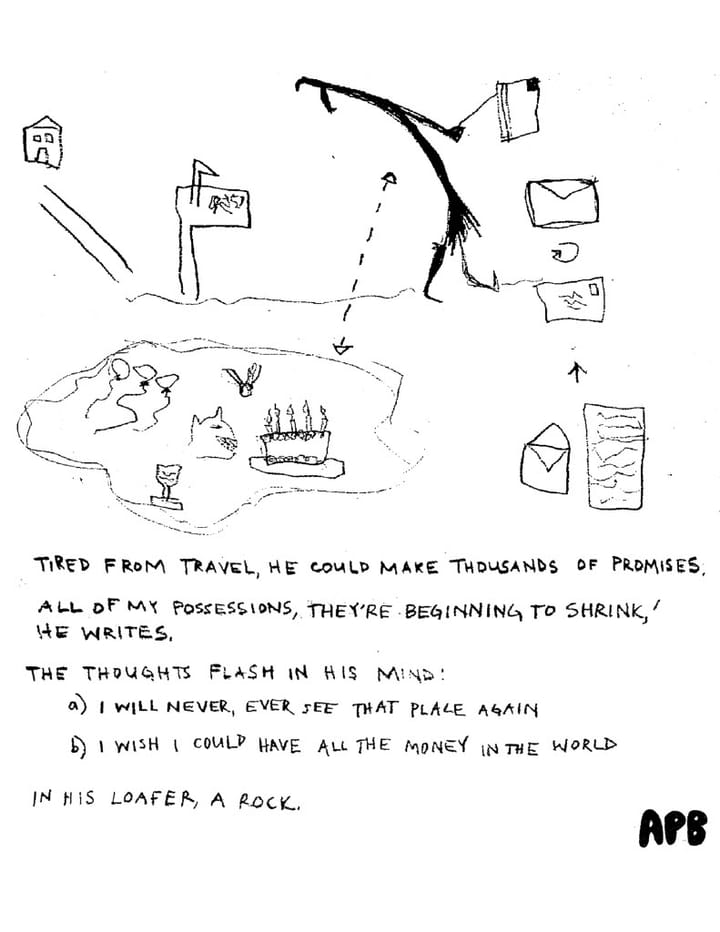 TIRED FROM TRAVEL, HE COULD MAKE THOUSANDS OF PROMISES.
ALL OF MY POSSESSIONS, THEY'RE BEGINNING TO SHRINK,'
HE WRITES.
THE THOUGHTS FLASH IN HIS MIND:
a) I WILL NEVER, EVER SEE THAT PLACE AGAIN
b) I WISH I COULD HAVE ALL THE MONEY IN THE WORLD
IN HIS LOAFER, A ROCK.
APB